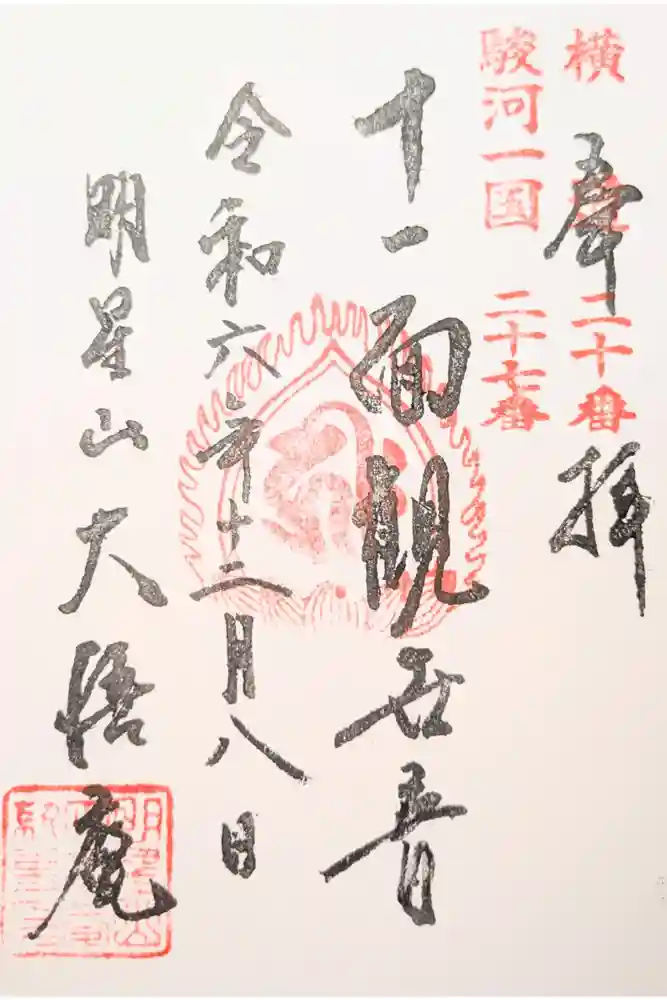 横 二十番
駿河一国 二十七番
奉拝
十一面観世音
令和六年十二月八日
明星山大悟庵